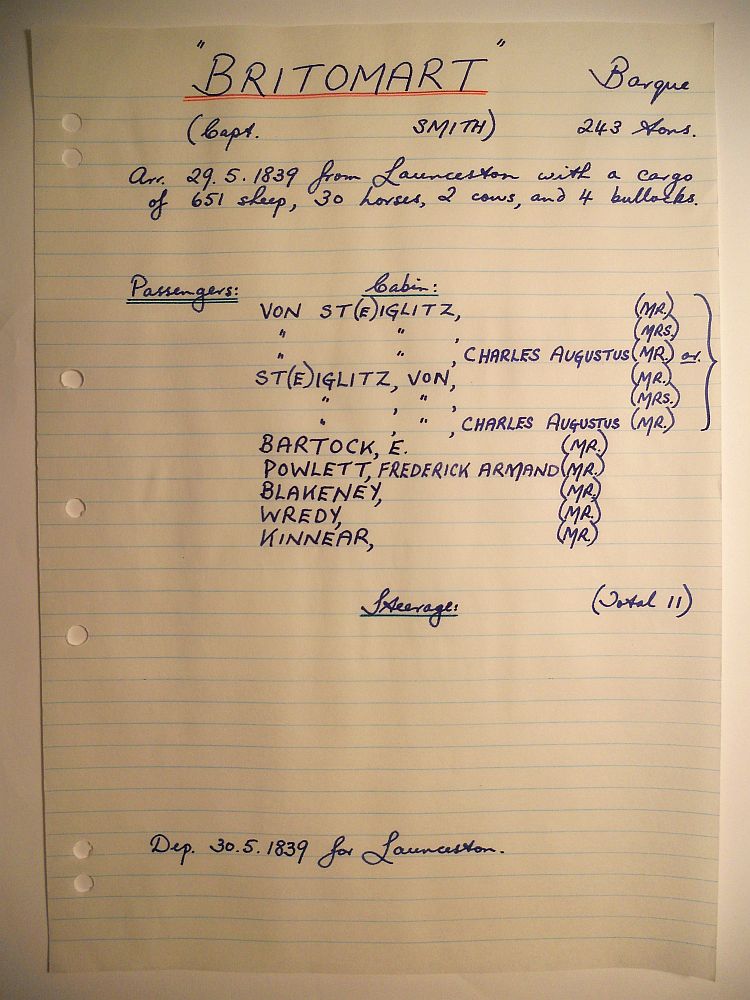 "BRITOMART" Barque
(Capt. SMITH) 243 tons.
Arr. 29.5.1839 from Launceston with a cargo
of 651 sheep, 30 horses, 2 cows, and 4 bullocks.
Passengers: Cabin:
VON ST(E)IGLITZ, (MR.)
" " , (MRS)
" " , CHARLES AUGUSTUS (MR.) or.
ST(E)IGLITZ, VON, (MR.)
" , " , (MRS.)
" , " , CHARLES AUGUSTUS (MR.)
BARTOCK, E. (MR.)
POWLETT, FREDERICK ARMAND (MR.)
BLAKENEY, (MR.)
WREDY, (MR.)
KINNEAR, (MR.)
Steerage: (Total 11)
Dep. 30.5.1839 for Launceston.